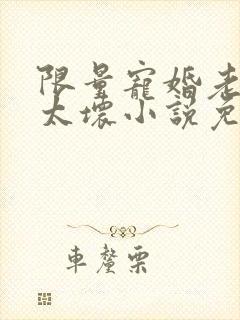 限量寵婚老
太壞小說免
車釐栗